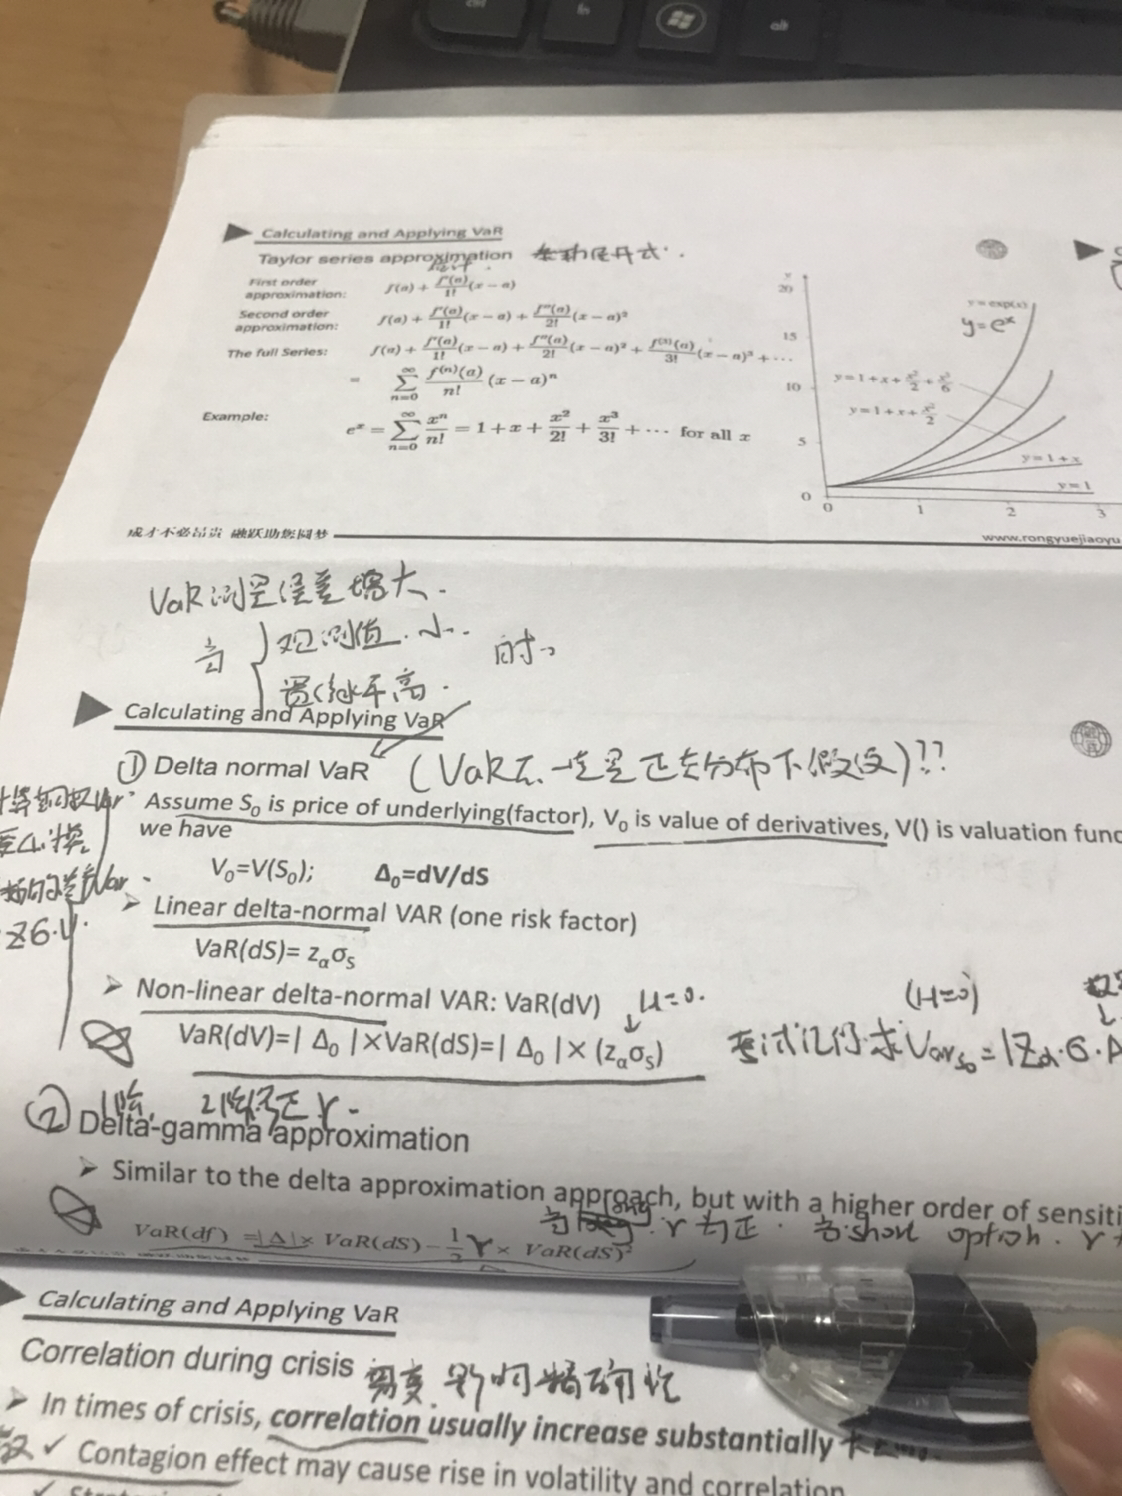 Calculating and Applying VaR
Taylor series approximation 泰勒展开式.
First order approximation: f(a) + f'(a)/1! (x − a)
Second order approximation: f(a) + f'(a)/1! (x − a) + f''(a)/2! (x − a)²
The full Series: f(a) + f'(a)/1! (x − a) + f''(a)/2! (x − a)² + f⁽³⁾(a)/3! (x − a)³ + ⋯
= ∑ n=0 ∞ f⁽ⁿ⁾(a)/n! (x − a)ⁿ
Example: eˣ = ∑ n=0 ∞ xⁿ/n! = 1 + x + x²/2! + x³/3! + ⋯ for all x
y
20
15
10
5
0
0 1 2 3
y = exp(x)
y=eˣ
y = 1 + x + x²/2 + x³/6
y = 1 + x + x²/2
y = 1 + x
y = 1
成才不必昂贵 融跃助您圆梦
www.rongyuejiaoyu
VaR测量误差增大.
当 观测值.小. 时。
置信水平高.
Calculating and Applying VaR
① Delta normal VaR (VaR不一定是正态分布下假设)!!
Assume S₀ is price of underlying(factor), V₀ is value of derivatives, V() is valuation func
we have
V₀=V(S₀); Δ₀=dV/dS
Linear delta-normal VAR (one risk factor)
VaR(dS)= zασs
Non-linear delta-normal VAR: VaR(dV) μ=0. (μ=0)
VaR(dV)=| Δ₀ |×VaR(dS)=| Δ₀ |× (zασs)
考试记得.求Var
② Delta-gamma approximation
Similar to the delta approximation approach, but with a higher order of sensiti
当 long. γ为正. 当short option. γ
VaR(df) =|Δ|× VaR(dS)− 1/2 γ × VaR(dS)²
Calculating and Applying VaR
Correlation during crisis 影响精确性
In times of crisis, correlation usually increase substantially
✓ Contagion effect may cause rise in volatility and correlation